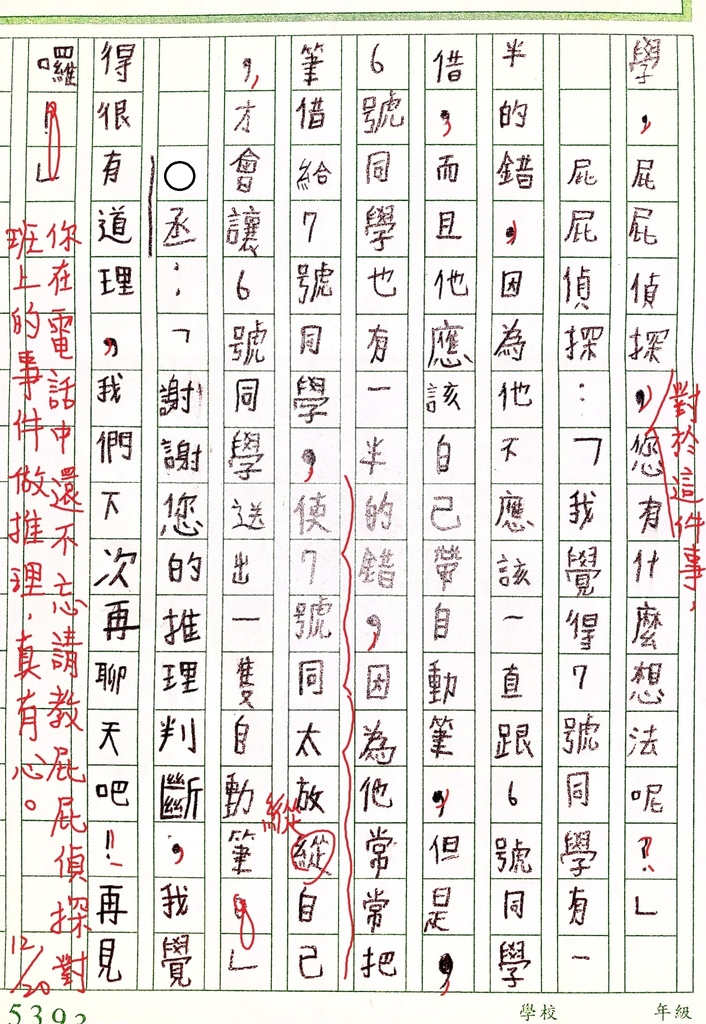 對於這件事，
學，屁屁偵探，您有什麼想法呢？」
屁屁偵探：「我覺得7號同學有一
半的錯，因為他不應該一直跟6號同學
借，而且他應該自己帶自動筆，但是，
6號同學也有一半的錯，因為他常常把
筆借給7號同學，使7號同太放縱自己
縱
，才會讓6號同學送出一雙自動筆。」
○丞：「謝謝您的推理判斷，我覺
得很有道理，我們下次再聊天吧！再見
囉！」
你在電話中還不忘請教屁屁偵探對
班上的事件做推理，真有心。
12/20
年級
學校
5393